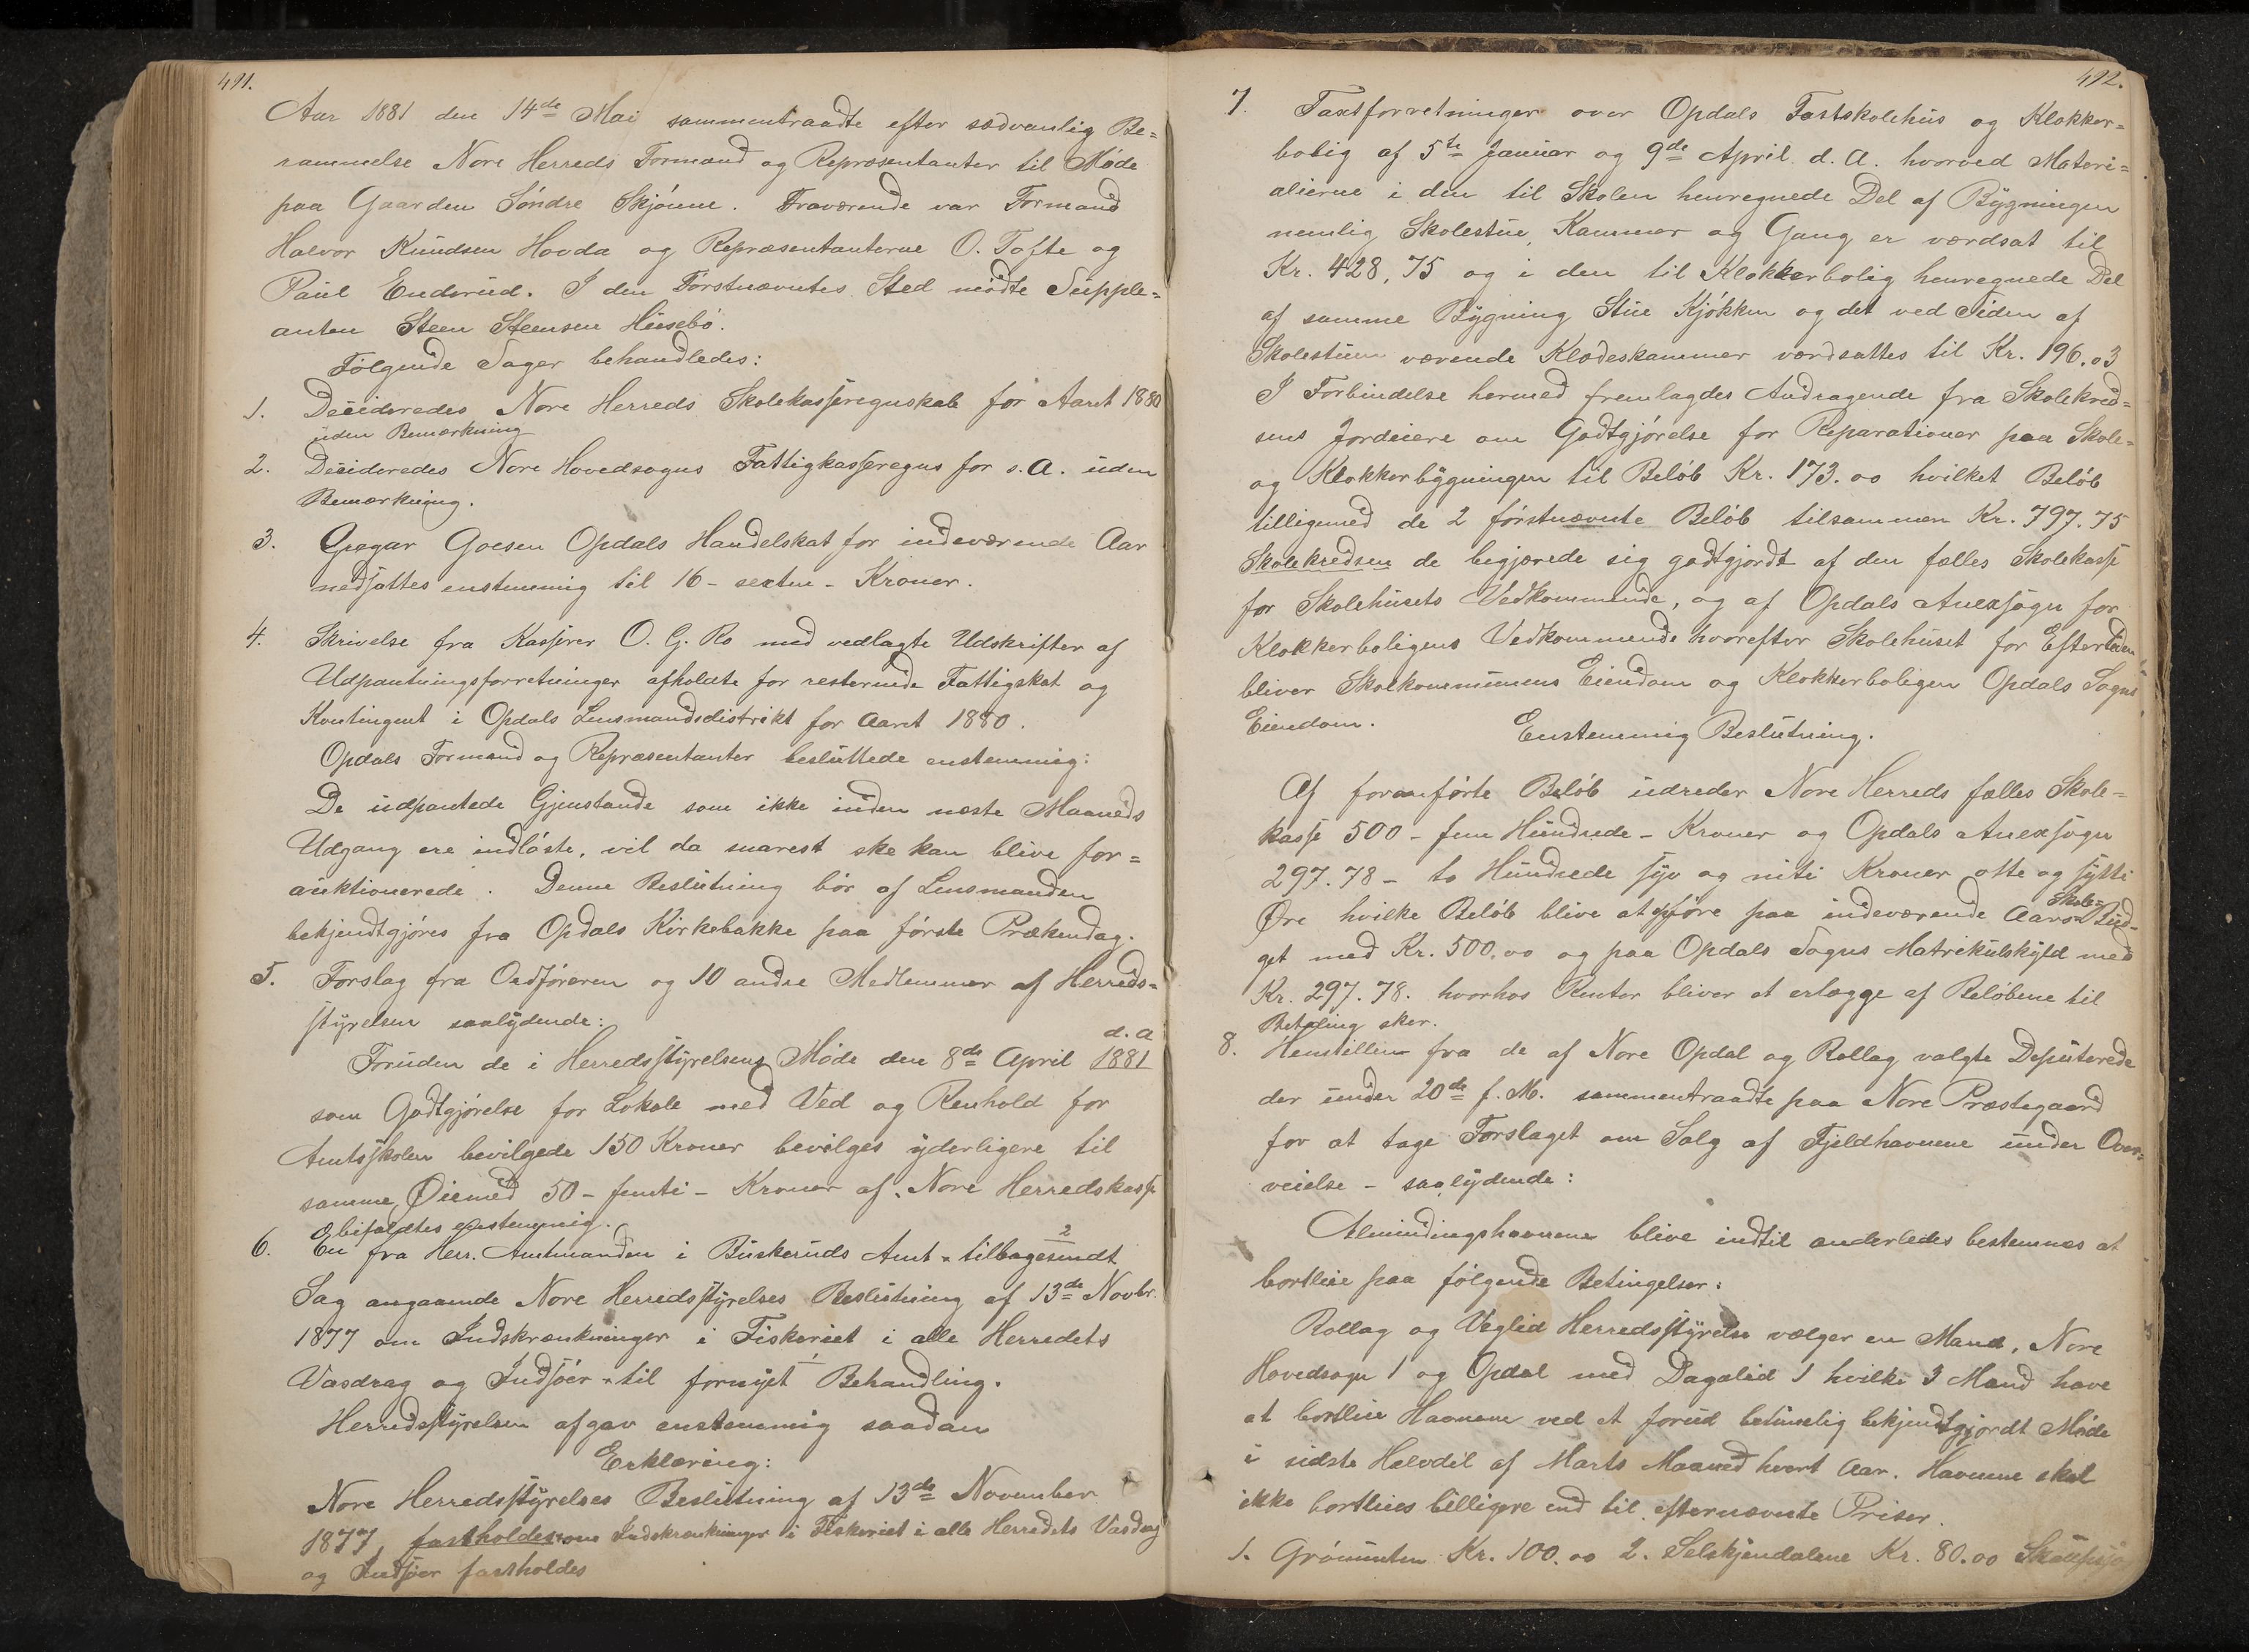 491.
Aar 1881 den 14de Mai sammentraadte efter sædvanlig Be=
rammelse Nore Herreds Formænd og Repræsentanter til Møde
paa Gaarden Søndre Skjønne. Fraværende var Formand
Halvor Knudsen Hovda og Repræsentanterne O. Tofte og
Paul Enderud. I den Førstnævntes Sted mødte Supple=
anten Steen Steensen Huusebø.
Følgende Sager behandledes:
1. Decideredes Nore Herreds Skolekasseregnskab for Aaret 1880
uden Bemærkning
2. Decideredes Nore Hovedsogns Fattigkasseregns for s. A. uden
Bemærkning.
3. Gregar Goesen Opdals Handelskat for indeværende Aar
nedsattes enstemmig til 16 - sexten - Kroner.
4. Skrivelse fra Kasserer O. G. Ro med vedlagte Udskrifter af
Udpantningsforretninger afholdte for resterende Fattigskat og
Kontingent i Opdals Lensmandsdistrikt for Aaret 1880.
Opdals Formænd og Repræsentanter besluttede enstemmig:
De udpantede Gjenstande som ikke inden næste Maaneds
Udgang ere indløste, vil da snarest ske kan blive for=
auktionerede. Denne Beslutning bør af Lensmanden
bekjendtgjøres fra Opdals Kirkebakke paa første Prækendag.
5. Forslag fra Ordføreren og 10 andre Medlemmer af Herreds=
styrelsen saalydende:
d. A
Foruden de i Herredsstyrelsens Møde den 8de April 1881
som Godtgjørelse for Lokale med Ved og Renhold for
Amtsskolen bevilgede 150 Kroner bevilges yderligere til
samme Øiemed 50 - femti - Kroner af Nore Herredskasse
bifaldtes enstemmig.
2
6. En fra Herr. Amtmanden i Buskeruds Amt tilbagesendt
Sag angaaende Nore Herredsstyrelses Beslutning af 13de Novbr.
1877 om Indskrænkninger i Fiskeriet i alle Herredets
Vasdrag og Indsøer til fornyet Behandling.
Herredsstyrelsen afgav enstemmig saadan
Erklæring:
Nore Herredsstyrelses Beslutning af 13de November
1877, fastholdes om Indskrænkninger i Fiskeriet i alle Herredets Vasdrag
og Indsøer fastholdes
492.
7. Taxtforretninger over Opdals Fastskolehus og Klokker=
bolig af 5te Januar og 9de April d. A. hvorved Materi=
alierne i den til Skolen henregnede Del af Bygningen
nemlig Skolestue, Kammer og Gang er værdsat til
Kr. 428,75 og i den til Klokkerbolig henregnede Del
af samme Bygning Stue Kjøkken og det ved Siden af
Skolestuen værende Klædeskammer værdsattes til Kr. 196.03
I Forbindelse hermed fremlagdes Andragende fra Skolekred=
sens Jordeiere om Godtgjørelse for Reparationer paa Skole=
og Klokkerbygningen til Beløb Kr. 173.00 hvilket Beløb
tilligemed de 2 førstnævnte Beløb tilsammen Kr. 797.75
Skolekredsen de begjærede sig godtgjordt af den fælles Skolekasse
for Skolehusets Vedkommende, og af Opdals Anexsogn for
Klokkerboligens Vedkommende hvorefter Skolehuset for Eftertiden
bliver Skolkommunens Eiendom og Klokkerboligen Opdals Sogns
Eiendom.
Enstemmig Beslutning.
Af foranførte Beløb udreder Nore Herreds fælles Skole=
kasse 500 - fem Hundrede - Kroner og Opdals Anexsogn
297.78 - to Hundrede syv og niti Kroner otte og sytti
Skole=
Øre hvilke Beløb blive at opføre paa indeværende Aars Bud=
get med Kr. 500.00 og paa Opdals Sogns Matrikulskyld med
Kr. 297.78. hvorhos Renter bliver at erlægge af Beløbene til
Betaling sker.
8. Henstillen fra de af Nore Opdal og Rollag valgte Deputerede
der under 20de f. M. sammentraadte paa Nore Præstegaard
for at tage Forslaget om Salg af Fjeldhavnene under Over=
veielse - saalydende:
Almindingshavnene blive indtil anderledes bestemmes at
bortleie paa følgende Betingelser:
Rollag og Veglid Herredsstyrelse vælger en Mand, Nore
Hovedsogn 1 og Opdal med Dagalid 1 hvilke 3 Mænd have
at bortleie Havnene ved et forud betimelig bekjendtgjordt Møde
i sidste Halvdel af Marts Maaned hvert Aar. Havnene skal
ikke bortleies billigere end til efternævnte Priser.
1. Grønnuten Kr. 100.00 2. Selskjendalene Kr. 80.00